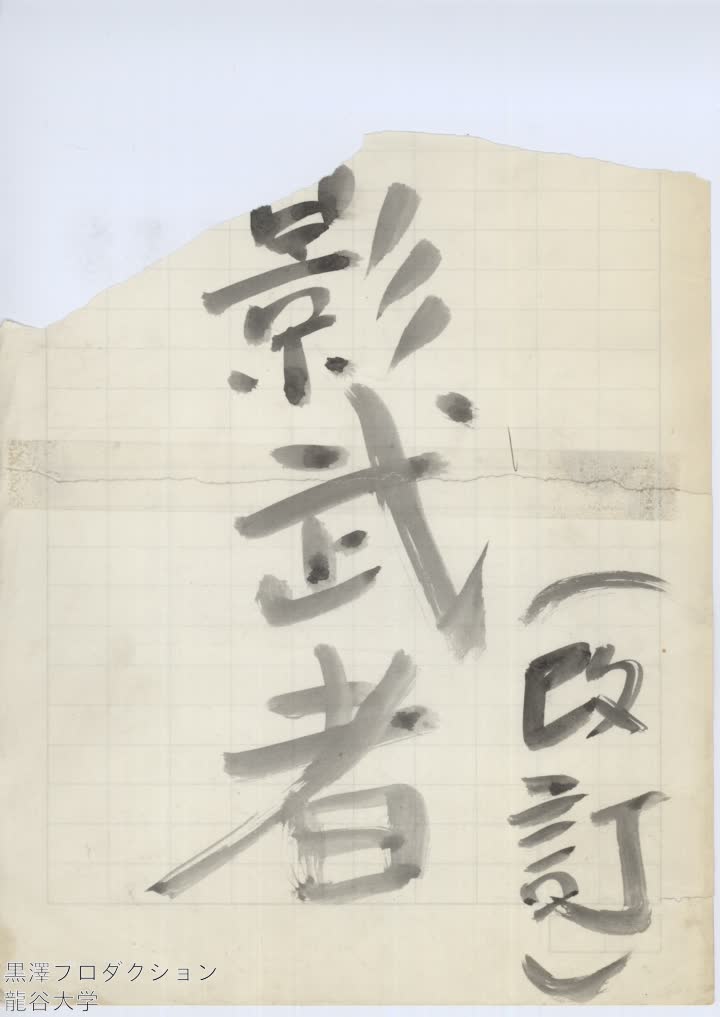 影武者
(改訂)
黒澤プロダクション
龍谷大学